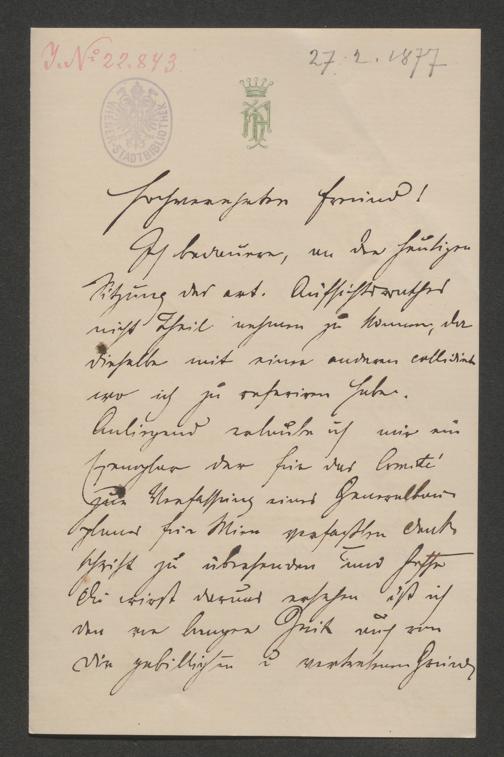 J. N° 22.843
27. 2. 1877
WIENER STADTBIBLIOTHEK
Hochverehrter Freund!
Ich bedauere, an der heutigen
Sitzung des art. Aufsichtsrathes
nicht Theil nehmen zu können, da
dieselbe mit einer anderen collidirt
wo ich zu referiren habe.
Anliegend erlaube ich mir ein
Exemplar der für das Comité
zur Verfassung eines Generalbau-
planes für Wien verfaßten Denk-
schrift zu übersenden und hoffe
Du wirst daraus ersehen daß ich
den vor langer Zeit auch von
Dir gebilligten u vertretenen Grund